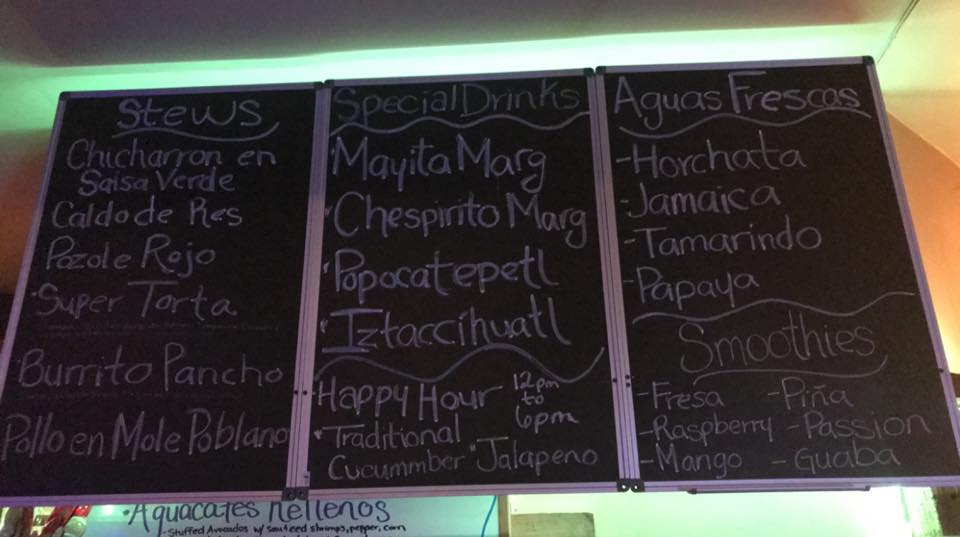 Stews
Chicharron en
Salsa Verde
Caldo de Res
Pozole Rojo
·Super Torta
·Burrito Pancho
Pollo en Mole Poblano
Special Drinks
·Mayita Marg
·Chespirito Marg
·Popocatepetl
·Iztaccíhuatl
Happy Hour 12pm
to
6pm
·Traditional
Cucummber ·Jalapeno
Aguas Frescas
-Horchata
-Jamaica
-Tamarindo
-Papaya
Smoothies
-Fresa -Piña
-Raspberry -Passion
-Mango -Guaba
·Aguacates Rellenos
-Stuffed Avocados w/ sauteed shrimps, pepper, corn